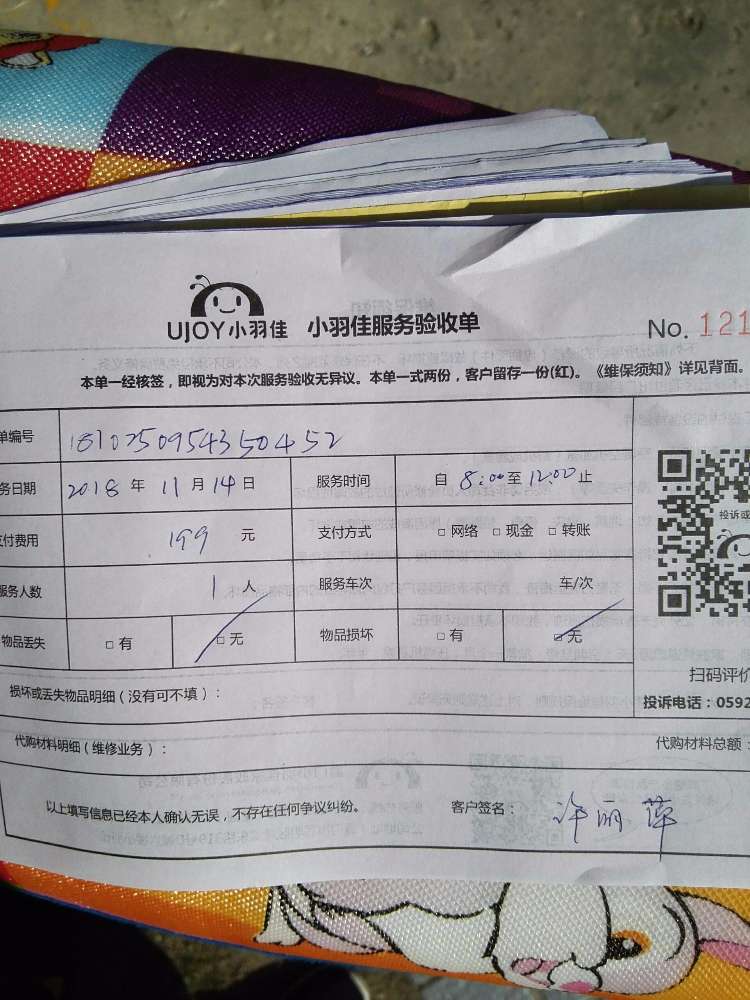 UJOY小羽佳 小羽佳服务验收单 No. 121
本单一经核签，即视为对本次服务验收无异议。本单一式两份，客户留存一份(红)。《维保须知》详见背面。
单编号 1810250954350452
务日期 2018 年 11 月 14 日 服务时间 自 8:00 至 12:00 止
支付费用 199 元 支付方式 □ 网络 □ 现金 □ 转账
服务人数 1 人 服务车次 车/次
物品丢失 □ 有 □ 无 物品损坏 □ 有 □ 无
投诉或
扫码评价
损坏或丢失物品明细（没有可不填）：
投诉电话：0592
代购材料明细（维修业务）： 代购材料总额：
以上填写信息已经本人确认无误，不存在任何争议纠纷。 客户签名： 许丽萍